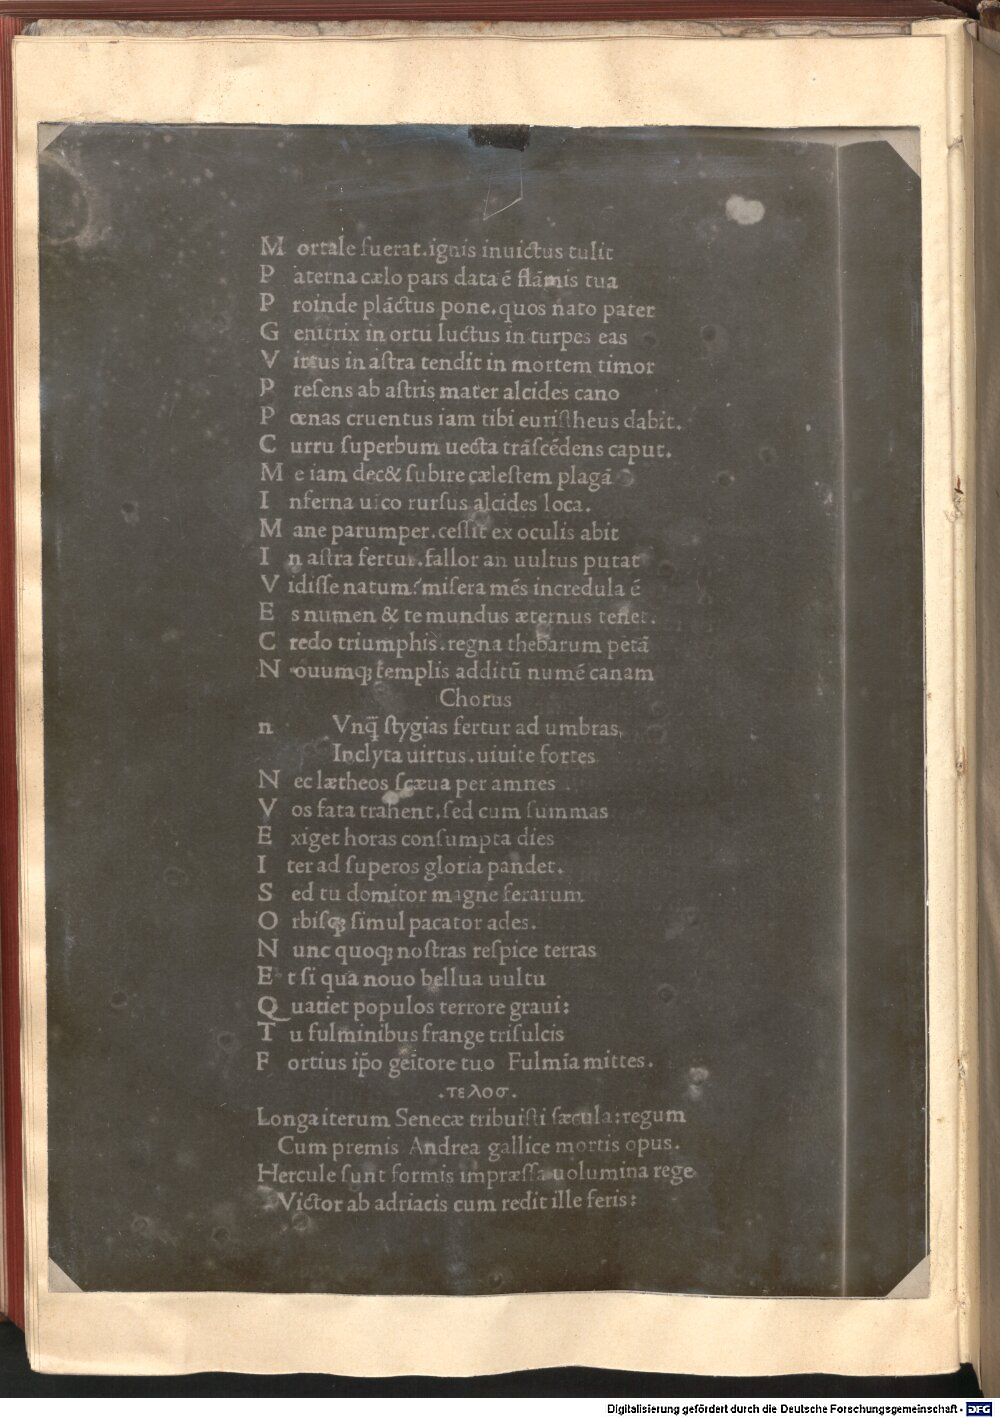 M ortale fuerat.ignis inuictus tulit
P aterna cælo pars data ē flāmis tua
P roinde plāctus pone.quos nato pater
G enitrix in ortu luctus in turpes eas
V irtus in aſtra tendit in mortem timor
P reſens ab aſtris mater alcides cano
P œnas cruentus iam tibi euriſtheus dabit.
C urru ſuperbum uecta trāſcēdens caput.
M e iam dec& ſubire cæleſtem plagā
I nferna uico rurſus alcides loca.
M ane parumper.ceſſit ex oculis abit
I n aſtra fertur.fallor an uultus putat
V idiſſe natum?miſera mēs incredula ē
E s numen & te mundus æternus tenet.
C redo triumphis.regna thebarum petā
N ouumq; templis additū numē canam
Chorus
n Vnq̄ ſtygias fertur ad umbras,
Inclyta uirtus.uiuite fortes
N ec lætheos ſcæua per amnes
V os fata trahent.ſed cum ſummas
E xiget horas conſumpta dies
I ter ad ſuperos gloria pandet.
S ed tu domitor magne ferarum
O rbiſq; ſimul pacator ades.
N unc quoq; noſtras reſpice terras
E t ſi qua nouo bellua uultu
Q uatiet populos terrore graui:
T u fulminibus frange triſulcis
F ortius ip̄o geītore tuo Fulmīa mittes.
.τελοσ.
Longa iterum Senecæ tribuiſti ſæcula:regum
Cum premis Andrea gallice mortis opus.
Hercule ſunt formis impræſſa uolumina rege
Victor ab adriacis cum redit ille feris:
Digitalisierung gefördert durch die Deutsche Forschungsgemeinschaft - DFG